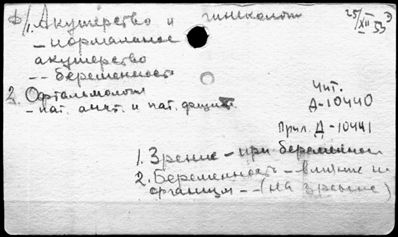 1. Акушерство и гинеколог
25/XII 55
- нормальное
акушерство
-- беременность
2. Офтальмолог
- пат. анат. и пат. физ.
Чит.
Д-10440
Прил. Д-10441
1. Зрение - при беременн
2. Беременность - влияние
организм -- (на зрение)